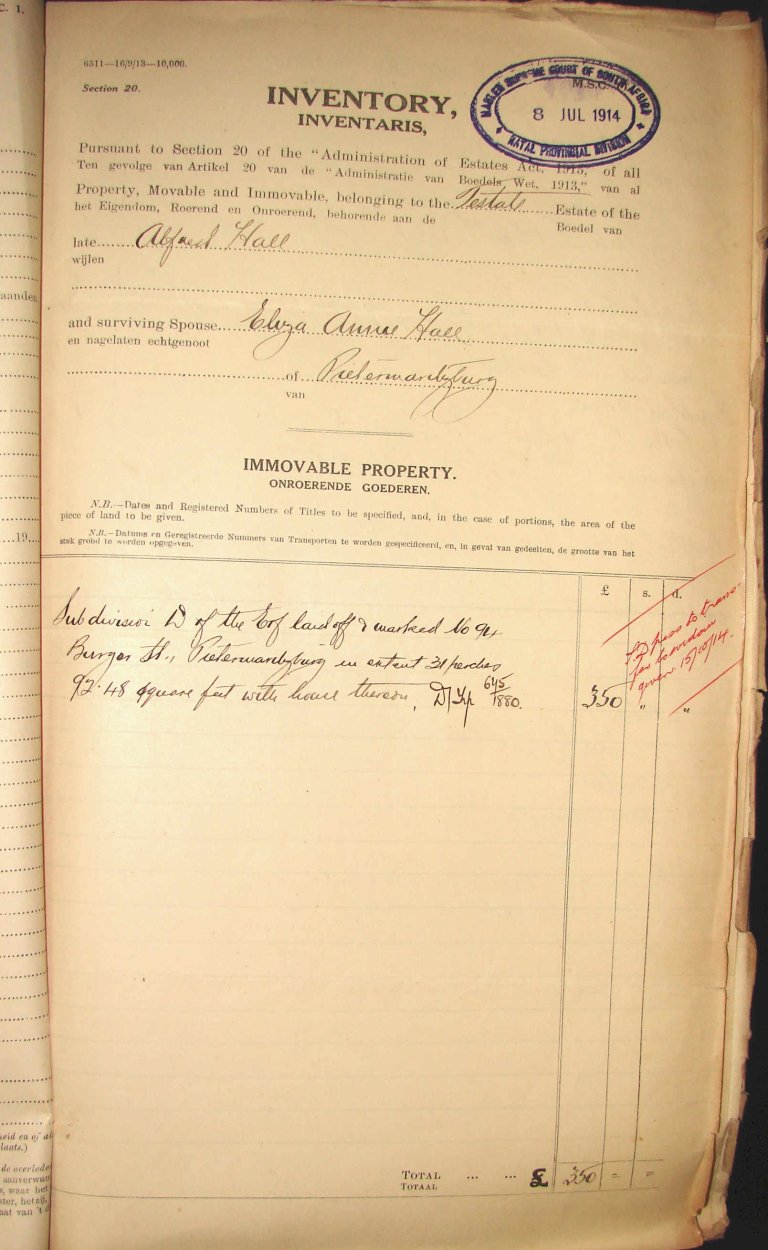 C. 1.
6511—16/9/13—10,000.
Section 20.
M.S.C.
MASTER SUPREME COURT OF SOUTH AFRICA
8 JUL 1914
NATAL PROVINCIAL DIVISION
INVENTORY,
INVENTARIS,
Pursuant to Section 20 of the "Administration of Estates Act, 1913, of all
Ten gevolge van Artikel 20 van de "Administratie van Boedels Wet, 1913," van al
Property, Movable and Immovable, belonging to the Testate Estate of the
het Eigendom, Roerend en Onroerend, behorende aan de Boedel van
late Alfred Hall
wijlen
and surviving Spouse Eliza Annie Hall
en nagelaten echtgenoot
of Pietermaritzburg
van
IMMOVABLE PROPERTY.
ONROERENDE GOEDEREN.
N.B.—Dates and Registered Numbers of Titles to be specified, and, in the case of portions, the area of the
piece of land to be given.
N.B.—Datums en Geregistreerde Nummers van Transporten te worden gespecificeerd, en, in geval van gedeelten, de grootte van het
stuk grond te worden opgegeven.
£ s. d.
Subdivision D of the Erf laid off & marked No 94
Burger St., Pietermaritzburg in extent 31 perches
92.48 square feet with house thereon, D/Trp 645/1880. 350 " "
pass to trans-
fer to widow
given 15/10/14.
TOTAL ... ... £ 350 = =
TOTAAL
aanden
19
heid en of al
laats.)
de overleden
aanverwan
s, waar het
ster, hetzij
aat van 't